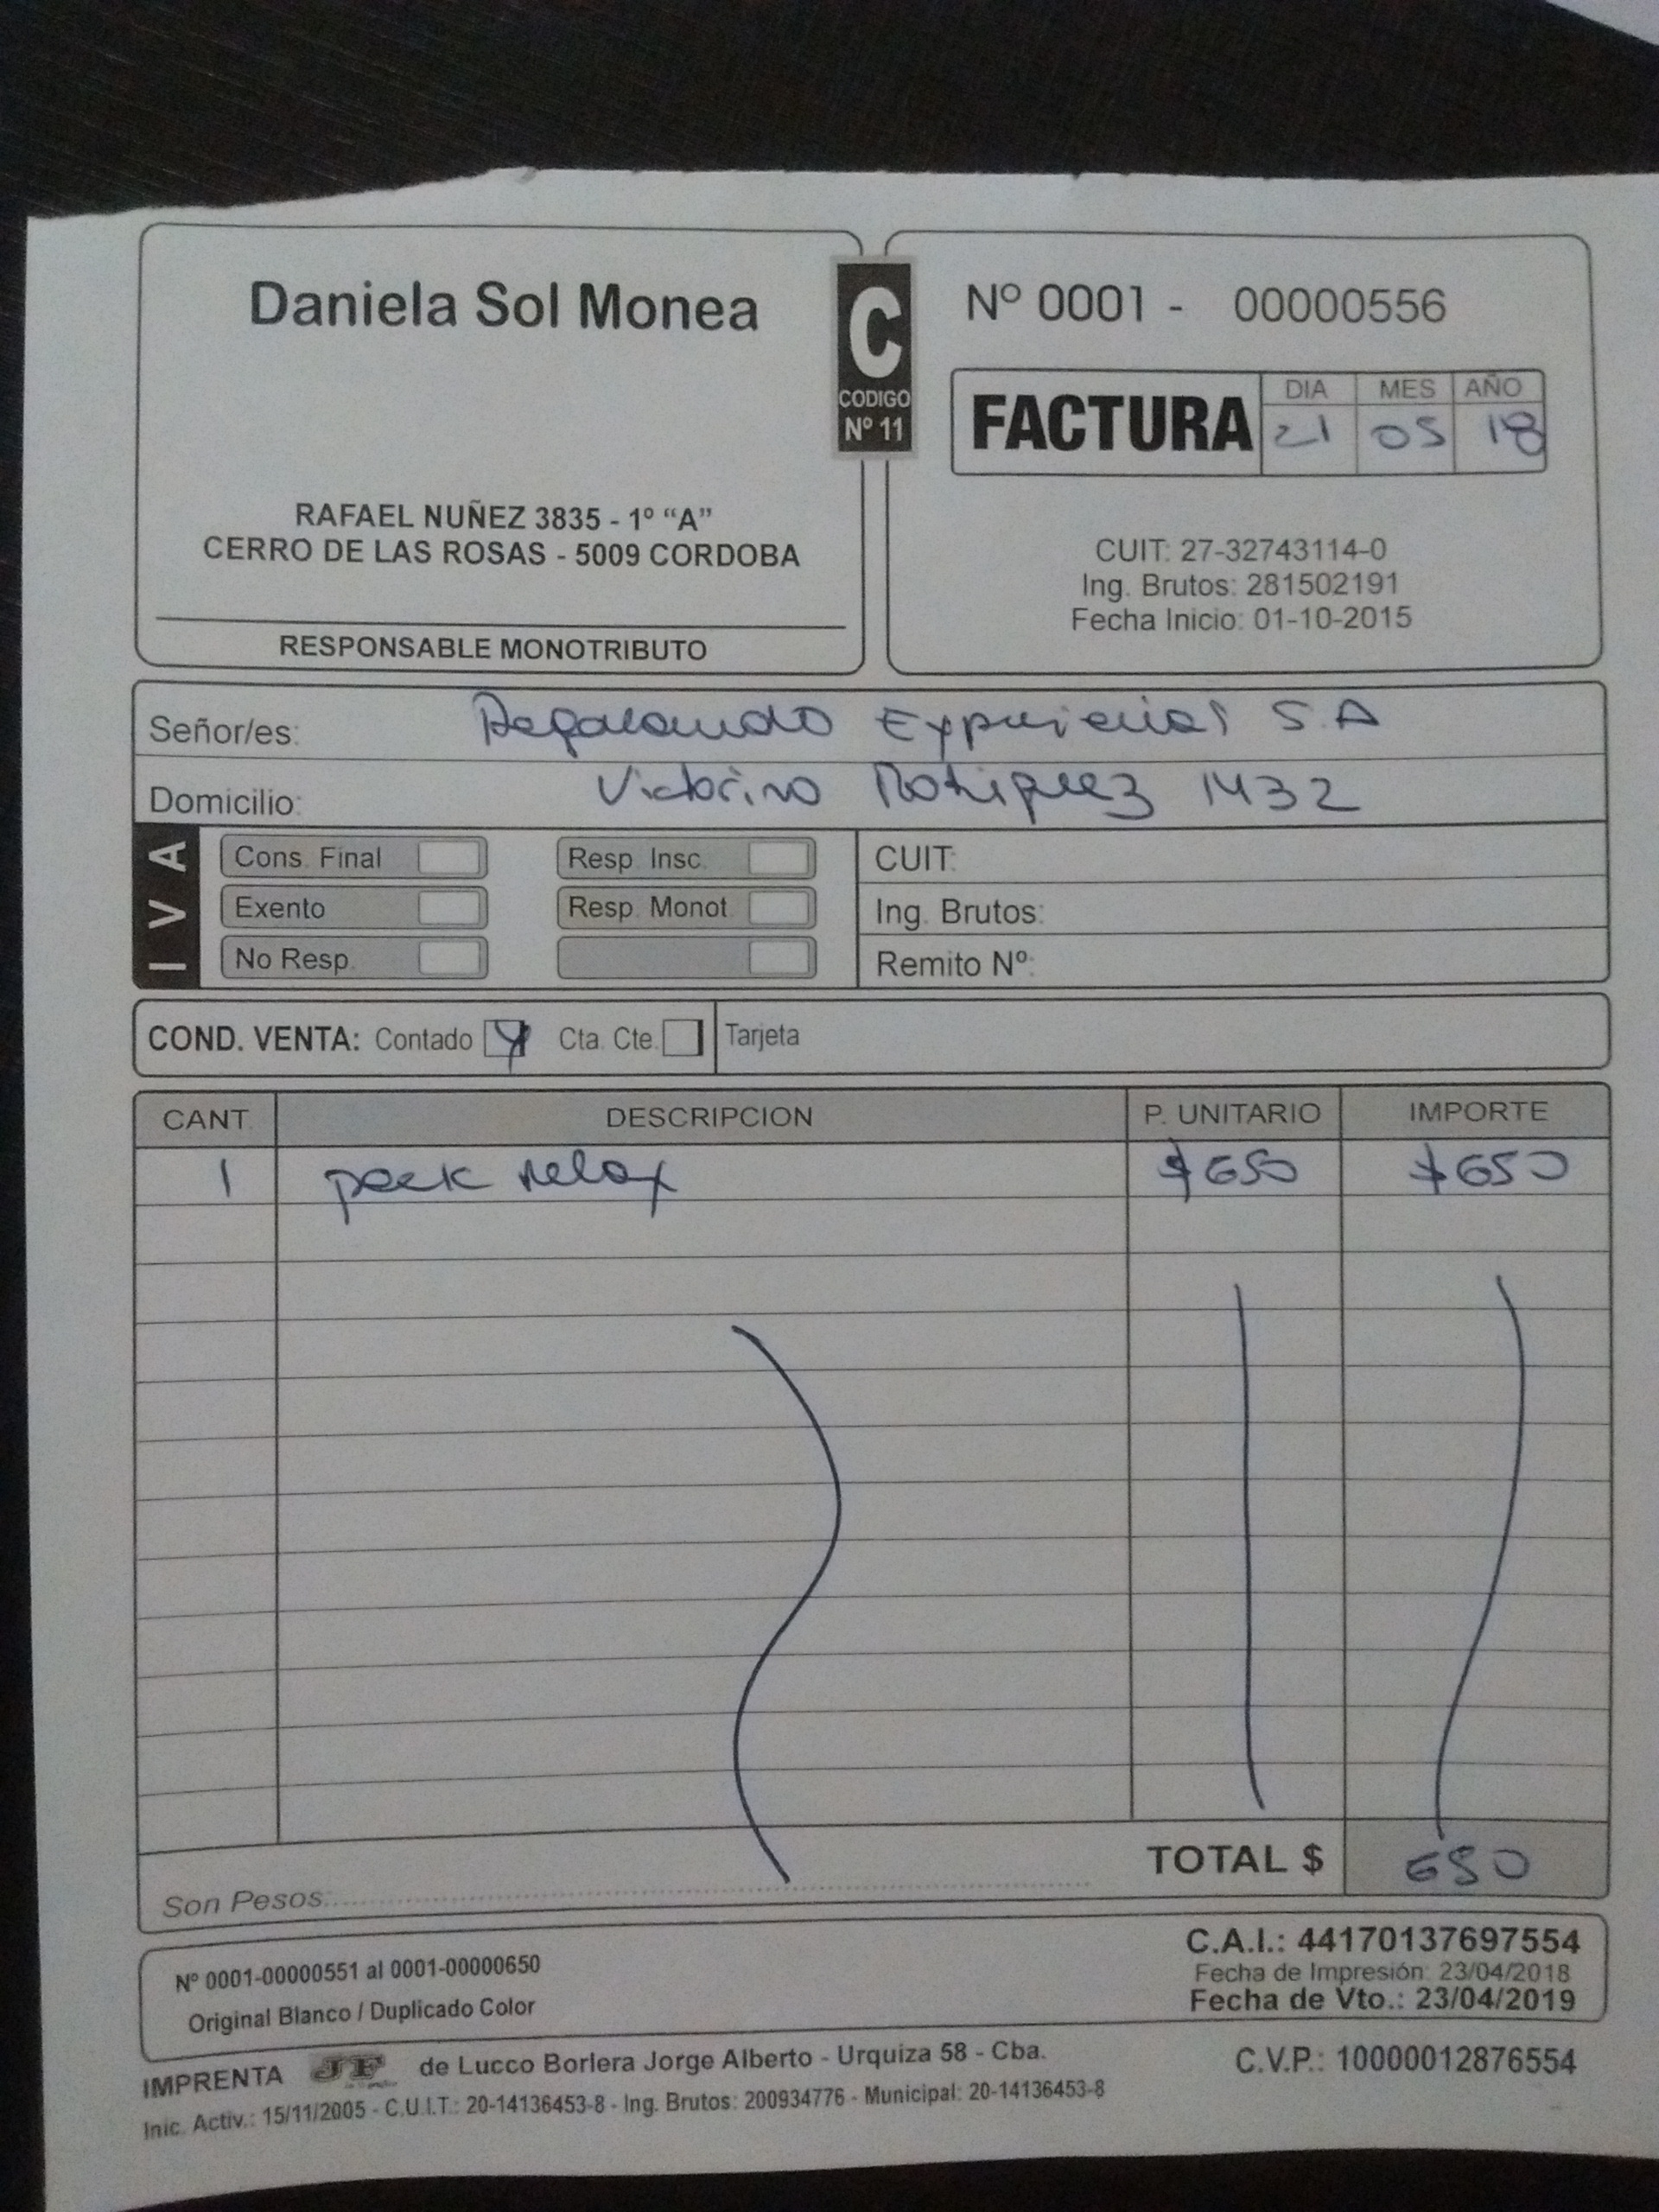 Daniela Sol Monea
RAFAEL NUÑEZ 3835 - 1º “A”
CERRO DE LAS ROSAS - 5009 CORDOBA
RESPONSABLE MONOTRIBUTO
C
CODIGO
Nº 11
Nº 0001 - 00000556
FACTURA
DIA MES AÑO
21 05 18
CUIT: 27-32743114-0
Ing. Brutos: 281502191
Fecha Inicio: 01-10-2015
Señor/es: Regalando Experiencias S.A
Domicilio: Victorino Rodriguez 1432
IVA
Cons. Final Resp. Insc. CUIT:
Exento Resp. Monot. Ing. Brutos:
No Resp. Remito Nº:
COND. VENTA: Contado Cta. Cte. Tarjeta
CANT. DESCRIPCION P. UNITARIO IMPORTE
1 pack relax $650 $650
TOTAL $ 650
Son Pesos:
Nº 0001-00000551 al 0001-00000650
Original Blanco / Duplicado Color
C.A.I.: 44170137697554
Fecha de Impresión: 23/04/2018
Fecha de Vto.: 23/04/2019
IMPRENTA JF de Lucco Borlera Jorge Alberto - Urquiza 58 - Cba.
Inic. Activ.: 15/11/2005 - C.U.I.T.: 20-14136453-8 - Ing. Brutos: 200934776 - Municipal: 20-14136453-8
C.V.P.: 10000012876554